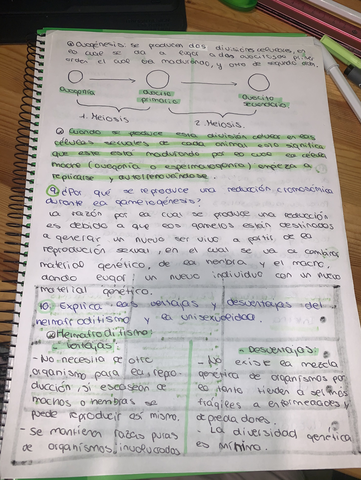 @ Ovogénesis se producen dos divisiones celulares, en
lo cual se da a lugar a dos ovocitos
orden el que ha madurando, y otro de segundo orden.
Ovogonia
ovocito
primario
ovocito
secundario
1. Meiosis
2. Meiosis.
cuando se produce esta división celular en las
células sexuales de cada animal esto significa
que este está madurando por lo cual la célula
madre (ovogonia o espermatogonia) empieza a
replicarse y autorrenovándose.
9. ¿Por qué se reproduce una reducción cromosómica
durante la gametogénesis?
La razón por la cual se produce una reducción
es debido a que los gametos están destinados
a generar un nuevo ser vivo a partir de la
reproducción sexual, en la cual se va a combinar
material genético, de la hembra y el macho,
dando lugar, un nuevo individuo con un nuevo
material genético.
10. Explica las ventajas y desventajas del
hermafroditismo y la unisexualidad
@ Hermafroditismo:
Ventajas
- No necesita de otro
organismo para la repro
ducción, si escasean de
machos o hembras se
puede reproducir así mismo.
- Se mantienen razas puras
de organismos involucrados
- Desventajas:
- No existe la mezcla
genética de organismos por
lo tanto tienden a ser más
frágiles a enfermedades y
depredadores.
- La diversidad genética
es mínimo.